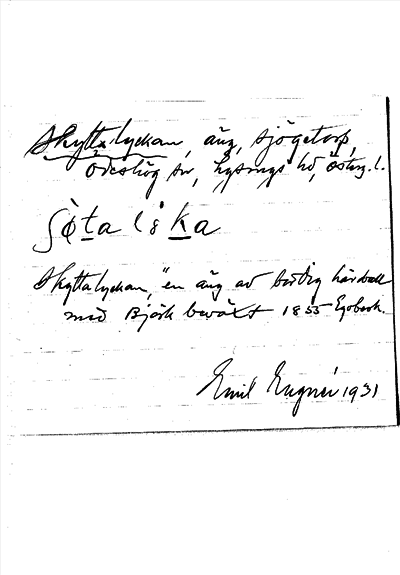 Skyttalyckan, äng, Sjögetorp,
Ödeshög sn, Lysings hd, Österg. l.
ʃø̀ta l ka
Skyttalyckan, "en äng av hårdvall
med Björk beväxt 1855 Egobesk.
Emil 1931